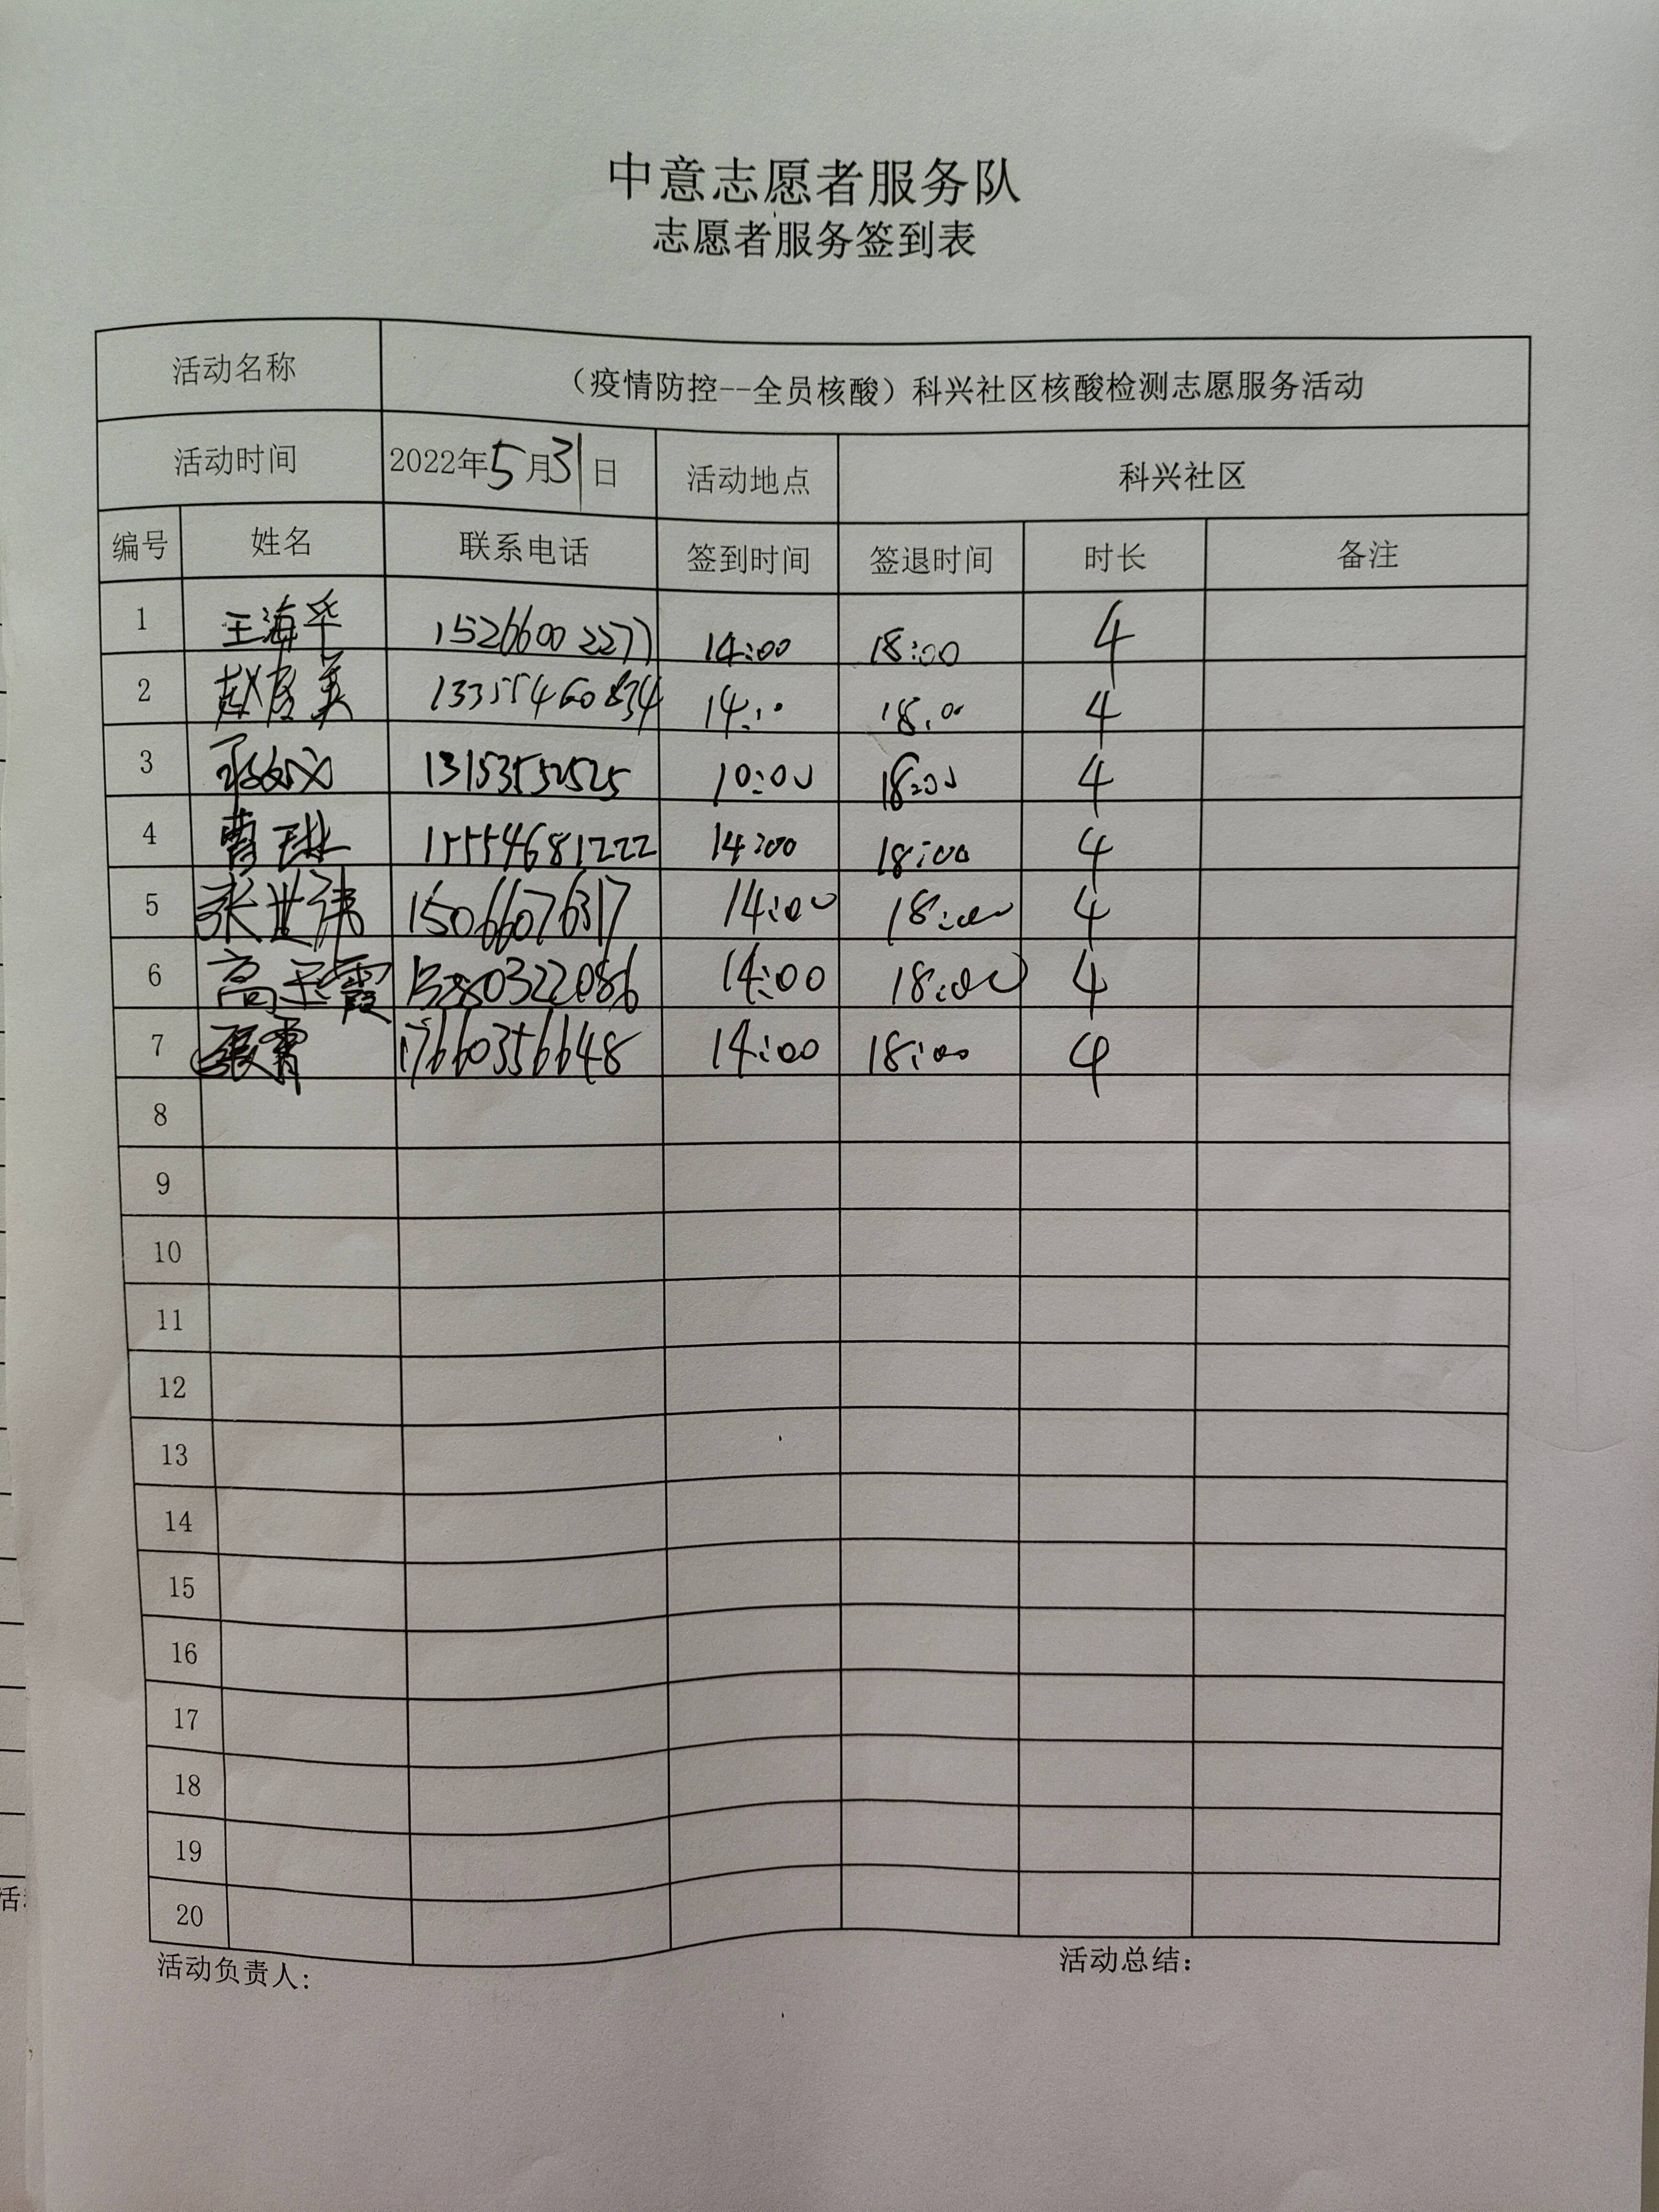 中意志愿者服务队
志愿者服务签到表
活动名称 (疫情防控--全员核酸)科兴社区核酸检测志愿服务活动
活动时间 2022年5月31日 活动地点 科兴社区
编号 姓名 联系电话 签到时间 签退时间 时长 备注
1 王海华 15266002277 14:00 18:00 4
2 赵居美 13355460834 14:00 18:00 4
3 13153552525 10:00 18:00 4
4 曹琳 15554681222 14:00 18:00 4
5 张世伟 15066076317 14:00 18:00 4
6 高玉霞 14:00 18:00 4
7 17660356648 14:00 18:00 4
8
9
10
11
12
13
14
15
16
17
18
19
20
活动负责人: 活动总结: